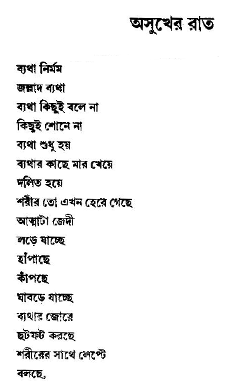 অসুখের রাত
ব্যথা নির্মম
জল্লাদ ব্যথা
ব্যথা কিছুই বলে না
কিছুই শোনে না
ব্যথা শুধু হয়
ব্যথার কাছে মার খেয়ে
দলিত হয়ে
শরীর তো এখন হেরে গেছে
আত্মাটা জেদী
লড়ে যাচ্ছে
হাঁপাচ্ছে
কাঁপছে
ঘাবড়ে যাচ্ছে
ব্যথার জোরে
ছটফট করছে
শরীরের সাথে লেপ্টে
বলছে,